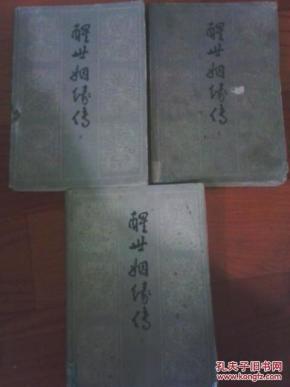 醒世姻缘传
醒世姻缘传
醒世姻缘传
孔夫子旧书网